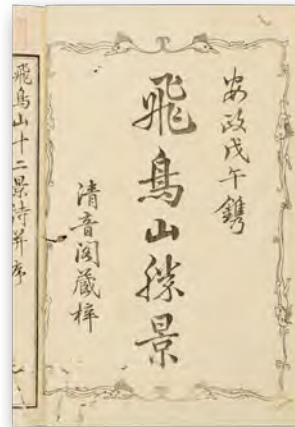 安政戊午鐫
飛鳥山勝景
清音閣藏梓
飛鳥山十二景詩并序